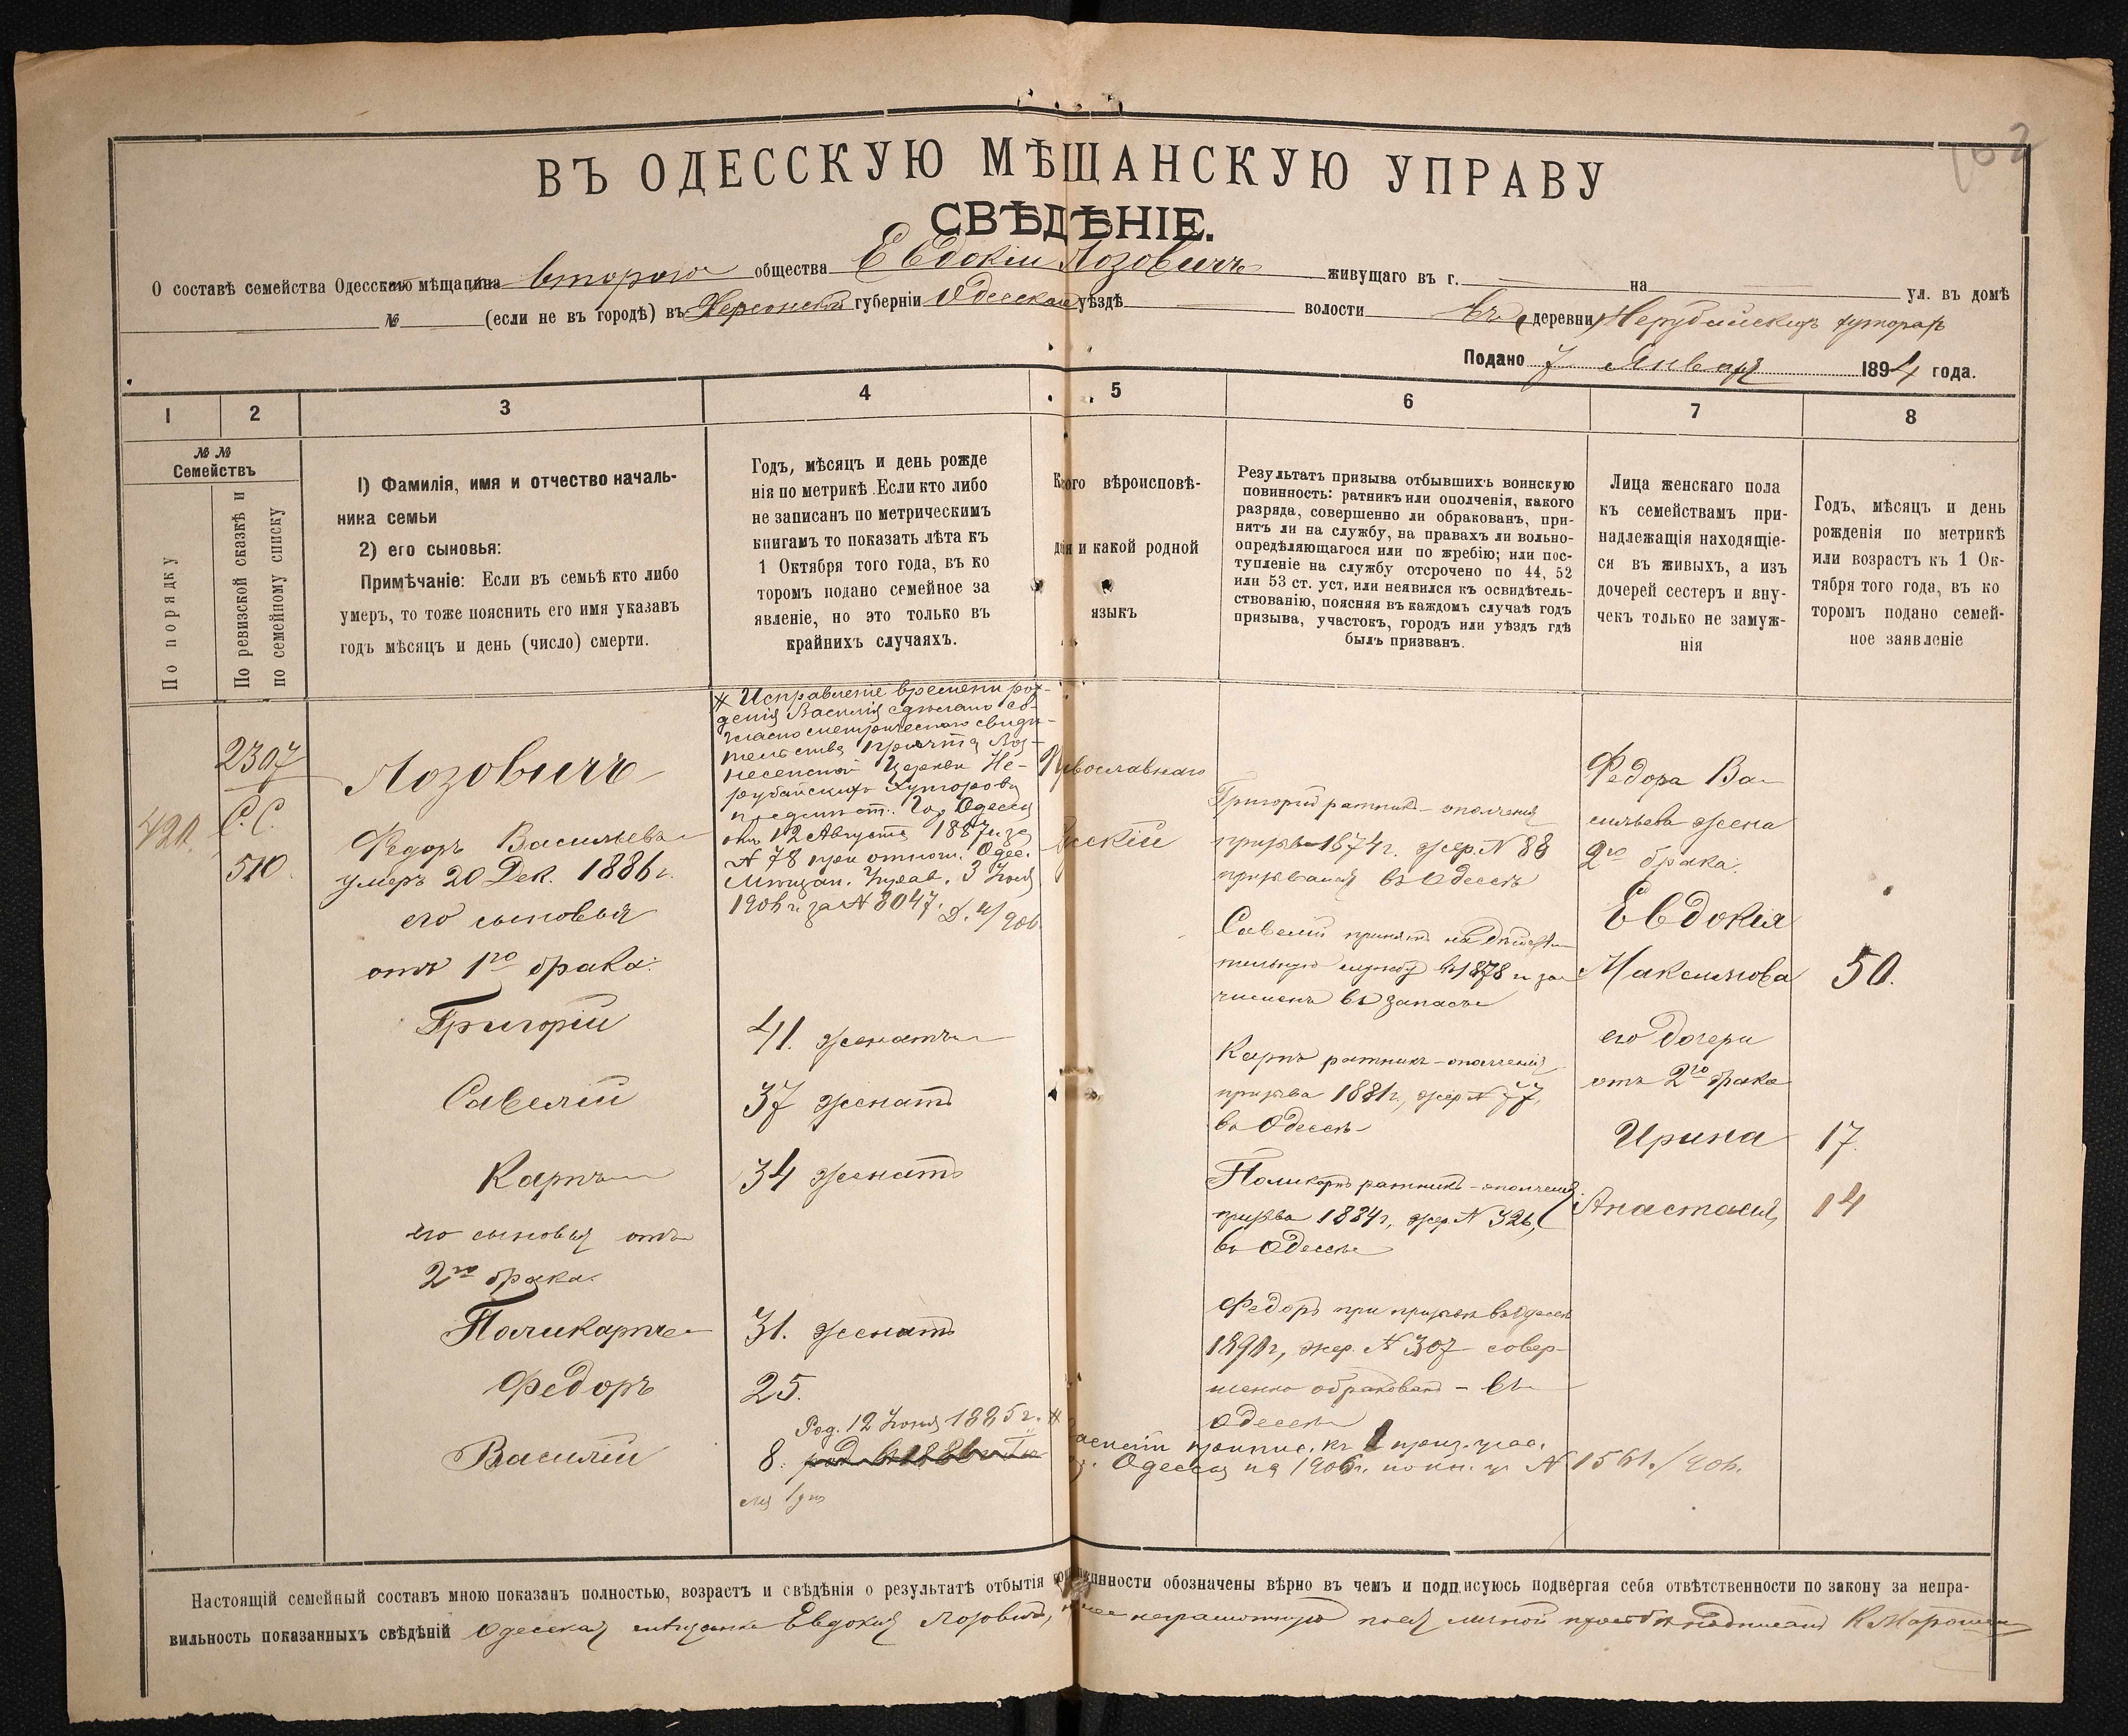 ВЪ ОДЕССКУЮ МѢЩАНСКУЮ УПРАВУ
СВѢДѢНІЕ.
О составѣ семейства Одесскаго мѣщанина второго общества Евдокіи Лозовичъ живущаго въ г. на ул. въ домѣ
№ (если не въ городѣ) въ Херсонской губерніи Одесскаго уѣздѣ волости въ (деревни) Нерубайскихъ хуторахъ
Подано 7 Января 1894 года.
1 2 3 4 5 6 7 8
№ №
Семействъ
По порядку
По ревизской сказкѣ и
по семейному списку
1) Фамилія, имя и отчество началь-
ника семьи
2) его сыновья:
Примѣчаніе: Если въ семьѣ кто либо
умеръ, то тоже пояснить его имя указавъ
годъ мѣсяцъ и день (число) смерти.
Годъ, мѣсяцъ и день рожде
нія по метрикѣ. Если кто либо
не записанъ по метрическимъ
книгамъ то показать лѣта къ
1 Октября того года, въ ко
торомъ подано семейное за
явленіе, но это только въ
крайнихъ случаяхъ.
Кого вѣроисповѣ-
дія и какой родной
языкъ
Результатъ призыва отбывшихъ воинскую
повинность: ратникъ или ополченія, какого
разряда, совершенно ли обракованъ, при-
нятъ ли на службу, на правахъ ли вольно-
опредѣляющагося или по жребію; или пос-
тупленіе на службу отсрочено по 44, 52
или 53 ст. уст, или неявился къ освидѣтель-
ствованію, поясняя въ каждомъ случаѣ годъ
призыва, участокъ, городъ или уѣздъ гдѣ
былъ призванъ.
Лица женскаго пола
къ семействамъ при-
надлежащія находящіе-
ся въ живыхъ, а изъ
дочерей сестеръ и вну-
чекъ только не замуж-
нія
Годъ, мѣсяцъ и день
рожденія по метрикѣ
или возрастъ къ 1 Ок-
тября того года, въ ко
торомъ подано семей-
ное заявленіе
2307
С.С.
510.
Лозовичъ
Федоръ Васильевъ
умеръ 20 Дек. 1886 г.
его сыновья
отъ 1го брака:
Григорій
Савелій
Карпъ
его сыновья отъ
2го брака.
Поликарпъ
Федоръ
Василій
✳ Исправленіе времени рож-
денія Василія сдѣлано со-
гласно метрическаго свидѣ-
тельства причта Воз-
несенской Церкви Не-
рубайскихъ Хуторовъ
предмѣст. Гор. Одессы
отъ 12 Августа 1887 г. за
№ 78 при отнош. Одес.
Мѣщан. Управ. 3 Іюня
1906 г. за № 8047.
41. женатъ
37 женатъ
34 женатъ
31. женатъ
25.
Род. 12 Іюня 1885 г. ✳
8.
Православнаго
Русскій
Григорій ратникъ ополченія
призыва 1874 г. жер. № 88
призывался въ Одессѣ
Савелій принятъ на дѣйстви-
тельную службу въ 1878 и за-
численъ въ запасъ
Карпъ ратникъ-ополченія
призыва 1881 г., жер № 77,
въ Одессѣ
Поликарпъ ратникъ-ополченія
призыва 1884 г., жер. № 326,
въ Одессѣ
Федоръ при призывѣ въ Одессѣ
1890 г, жер. № 307 совер-
шенно обракованъ - въ
Одессѣ
Василій припис. къ 1 приз. учас.
г. Одессы на 1906 г. № 1561./906.
Федора Ва-
сильева жена
2го брака:
Евдокія
Максимова
его дочери
отъ 2го брака
Ирина
Анастасія
50.
17.
14
Настоящій семейный составъ мною показанъ полностью, возрастъ и свѣдѣнія о результатѣ отбытія повинности обозначены вѣрно въ чемъ и подписуюсь подвергая себя отвѣтственности по закону за непра-
вильность показанныхъ свѣдѣній Одесская мѣщанка Евдокія Лозовичъ, неграмотную по ея личной просьбѣ подписалъ